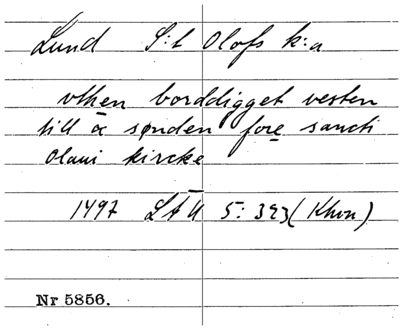 Lund S:t Olofs k:a
vthen borddigget vesten
till oc sønden fore sancti
Olaui kircke
1497 LÄU 5: 393 (Khvn)
Nr 5856.